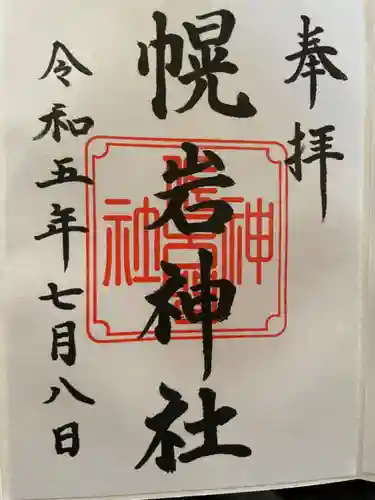 奉拝
幌岩神社
令和五年七月八日